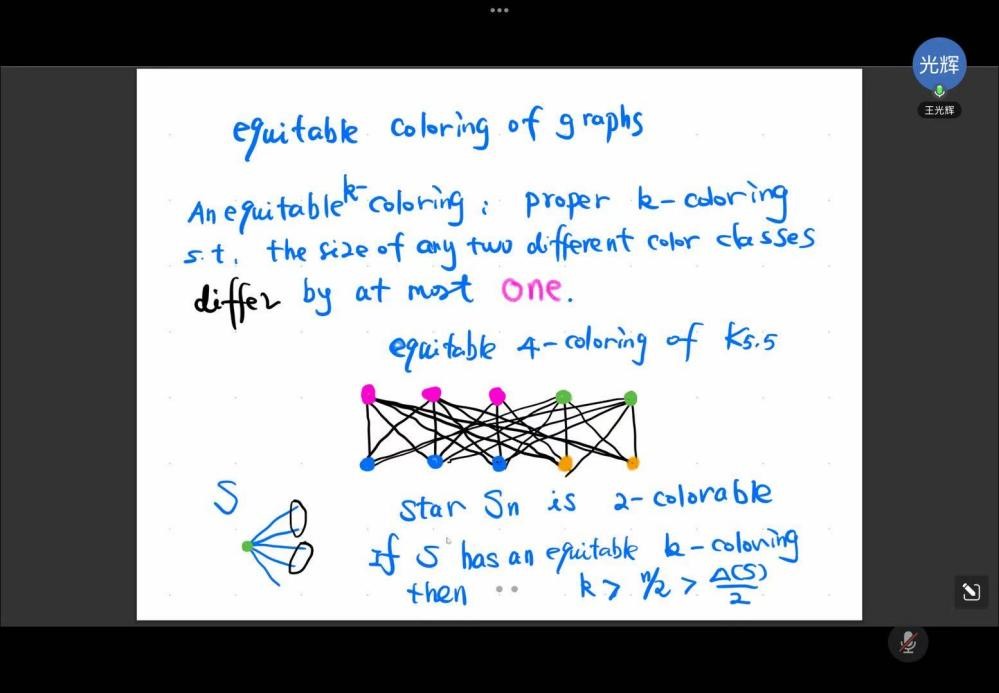 光辉
王光辉
equitable coloring of graphs
An equitable k-coloring: proper k-coloring
s.t. the size of any two different color classes
differ by at most one.
equitable 4-coloring of K5.5
S
star Sn is 2-colorable
If S has an equitable k-coloring
then k > n/2 > Δ(S)/2